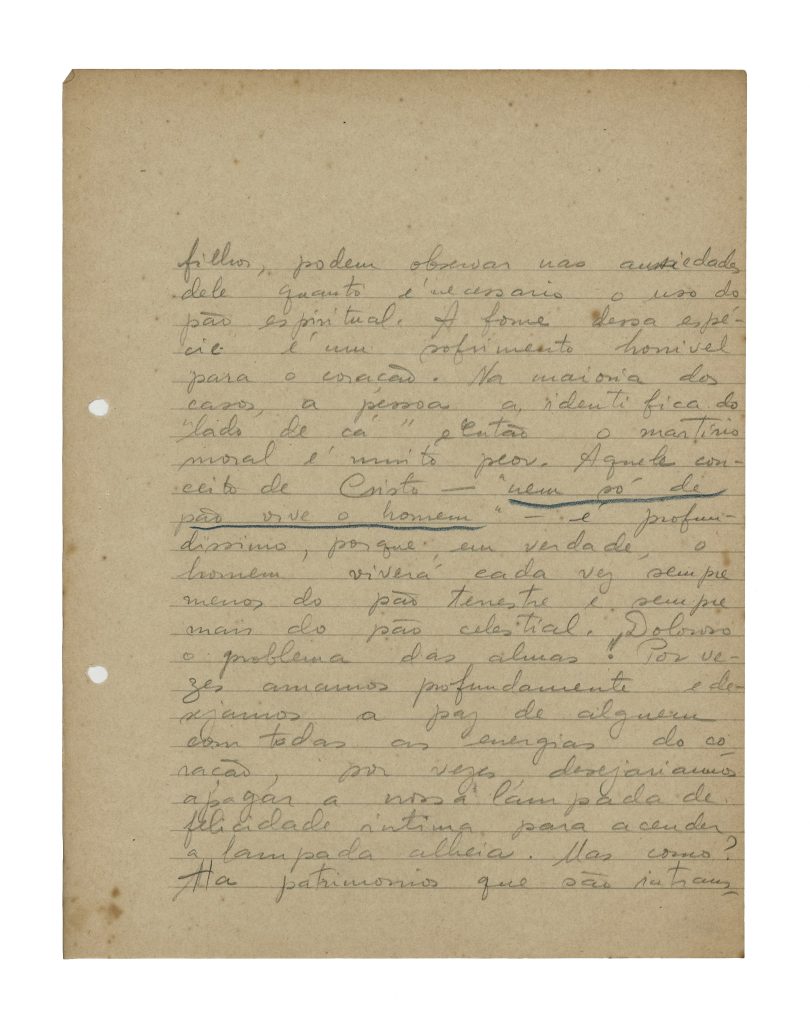 filhos, podem observar nas ansiedades
dele quanto é necessario o uso do
pão espiritual. A fome dessa espé-
cie é um sofrimento horrivel
para o coração. Na maioria dos
casos, a pessoa a, identificado
"lado de cá" e então o martirio
moral é muito peor. Aquele con-
ceito de Cristo — "nem só de
pão vive o homem" — é profun-
dissimo, porque, em verdade, o
homem viverá cada vez sempre
menos do pão terrestre e sempre
mais do pão celestial. Doloroso
o problema das almas! Por ve-
zes amamos profundamente e de-
sejamos a paz de alguem
com todas as energias do co
ração, por vezes desejariamos
apagar a nossa lampada de
felicidade intima para acender
a lampada alheia. Mas como?
Ha patrimonios que são intrans-